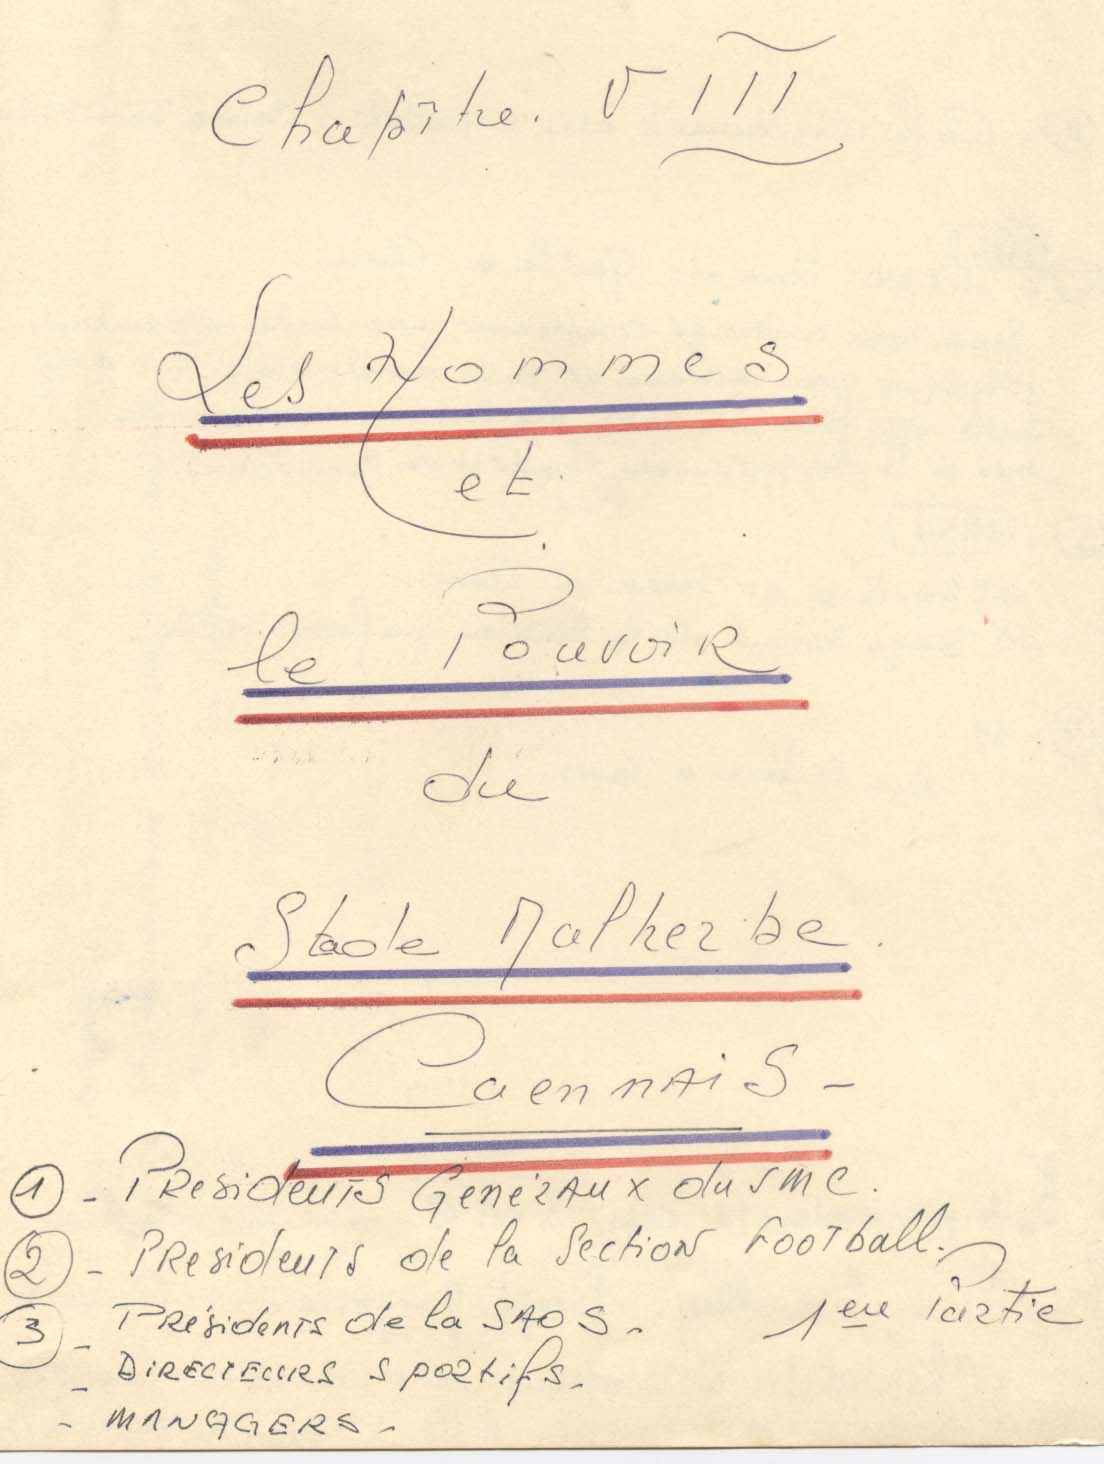 Chapître. VIII
Les Hommes
et
le Pouvoir
du
Stade Malherbe.
Caennais -
1 - Présidents Généraux du SMC.
2 - Présidents de la Section Football.
1ere Partie
3 - Présidents de la SAOS.
- Directeurs Sportifs.
- MANAGERS -